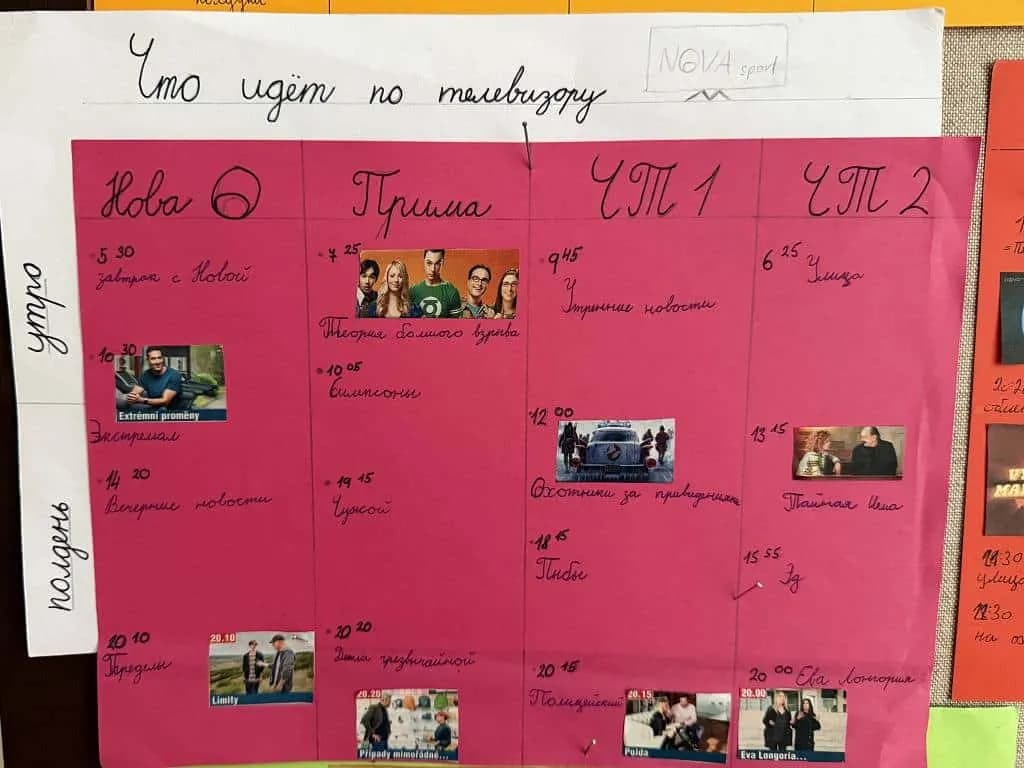 Что идёт по телевизору
NOVA sport
утро
полдень
Нова
5 30
завтрак с Новой
10 30
Extrémní proměny
Экстремал
14 20
Вечерние новости
20 10
Пределы
20.10
Limity
Прима
7 25
Теория болшого взрыва
10 05
Симпсоны
19 15
Чужой
20 20
Дела чрезвычайной
20.20
Případy mimořádné...
ЧТ 1
9 45
Утренние новости
12 00
Охотники за привидениями
18 15
20 15
Полицейский
20.15
ЧТ 2
6 25 Улица
13 15
Тайная Цена
15 55
20 00 Ева Лонгория
20.00
Eva Longoria...